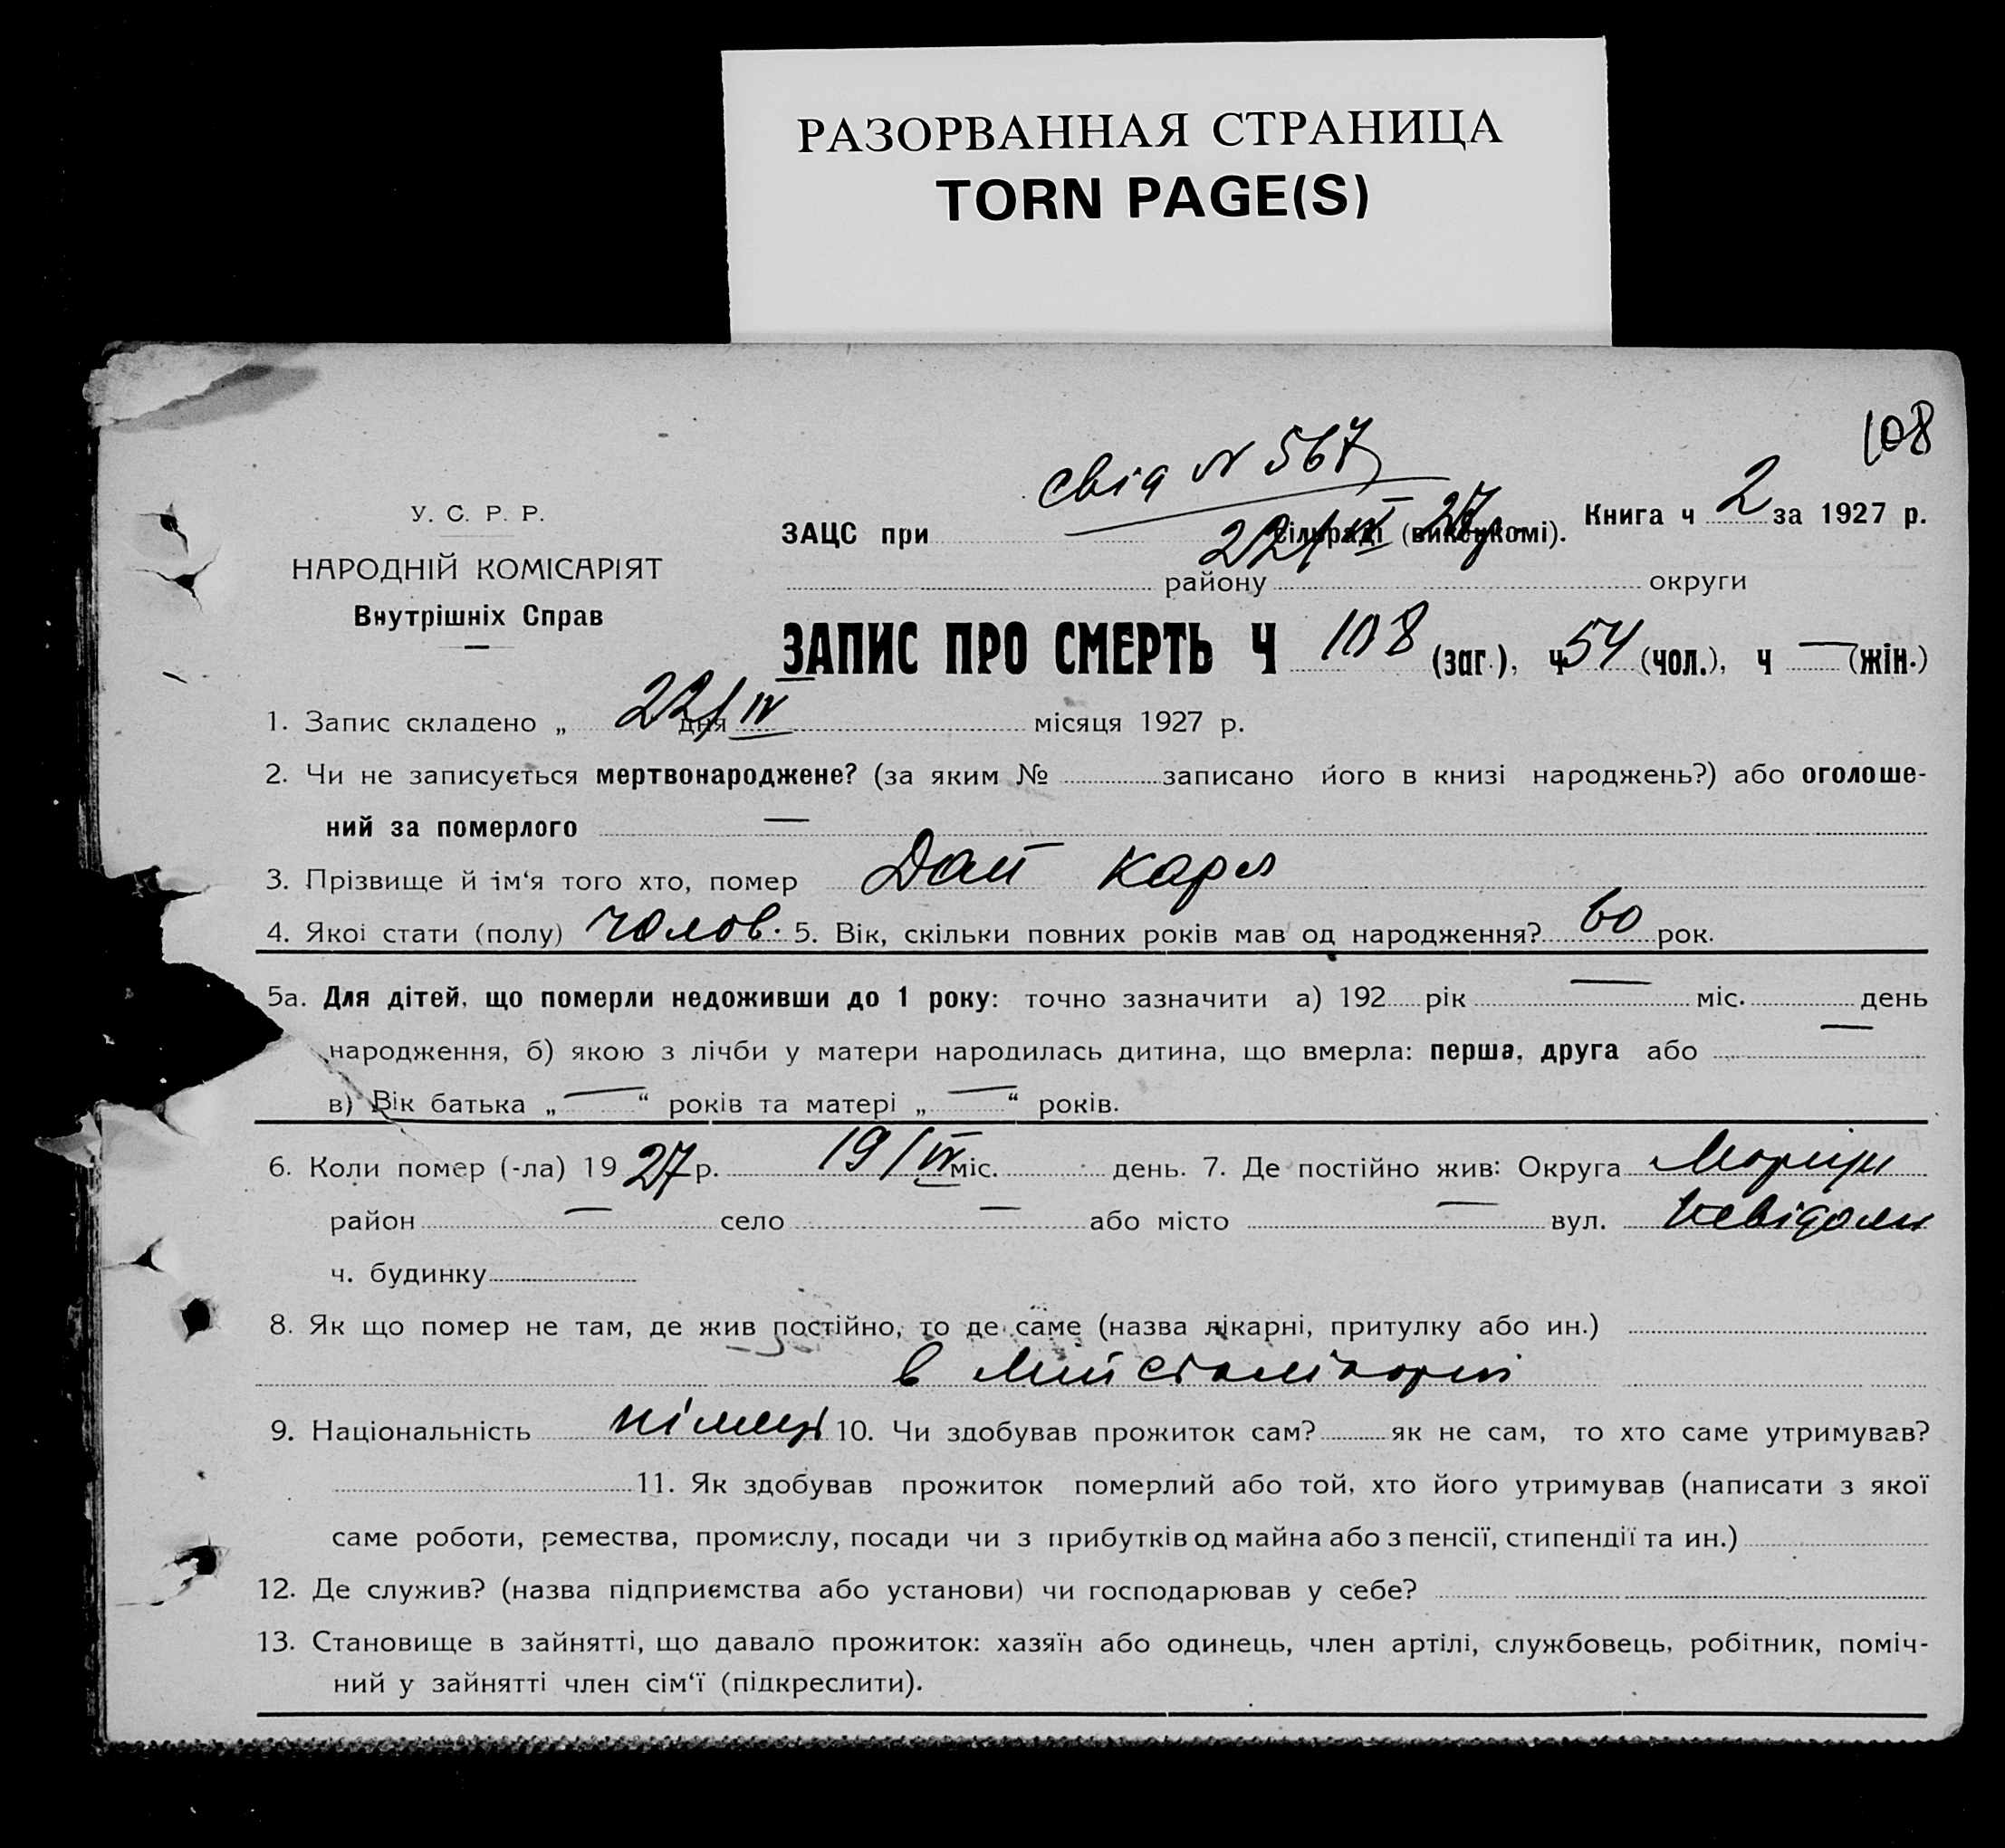 РАЗОРВАННАЯ СТРАНИЦА
TORN PAGE(S)
108
свід N 567
22/IV 27р.
У. С. Р. Р.
НАРОДНІЙ КОМІСАРІЯТ
Внутрішніх Справ
ЗАЦС при сільраді (виконкомі). Книга ч 2 за 1927 р.
району округи
ЗАПИС ПРО СМЕРТЬ Ч 108 (заг.), ч 54 (чол.), ч — (жін.)
1. Запис складено „ 22/IV дня місяця 1927 р.
2. Чи не записується мертвонароджене? (за яким № записано його в книзі народжень?) або оголоше-
ний за померлого —
3. Прізвище й ім‘я того хто, помер Дай Карл
4. Якої стати (полу) чолов. 5. Вік, скільки повних років мав од народження? 60 рок.
5а. Для дітей, що померли недоживши до 1 року: точно зазначити а) 192 рік — міс. день
народження, б) якою з лічби у матери народилась дитина, що вмерла: перша, друга або —
в) Вік батька „ — “ років та матері „ — “ років.
6. Коли помер (-ла) 19 27 р. 19/IV міс. день. 7. Де постійно жив: Округа
район — село — або місто — вул. невідом
ч. будинку
8. Як що помер не там, де жив постійно, то де саме (назва лікарні, притулку або ин.)
в
9. Національність німець 10. Чи здобував прожиток сам? як не сам, то хто саме утримував?
11. Як здобував прожиток померлий або той, хто його утримував (написати з якої
саме роботи, ремества, промислу, посади чи з прибутків од майна або з пенсії, стипендії та ин.)
12. Де служив? (назва підприємства або установи) чи господарював у себе?
13. Становище в зайнятті, що давало прожиток: хазяїн або одинець, член артілі, службовець, робітник, поміч-
ний у зайнятті член сім‘ї (підкреслити).